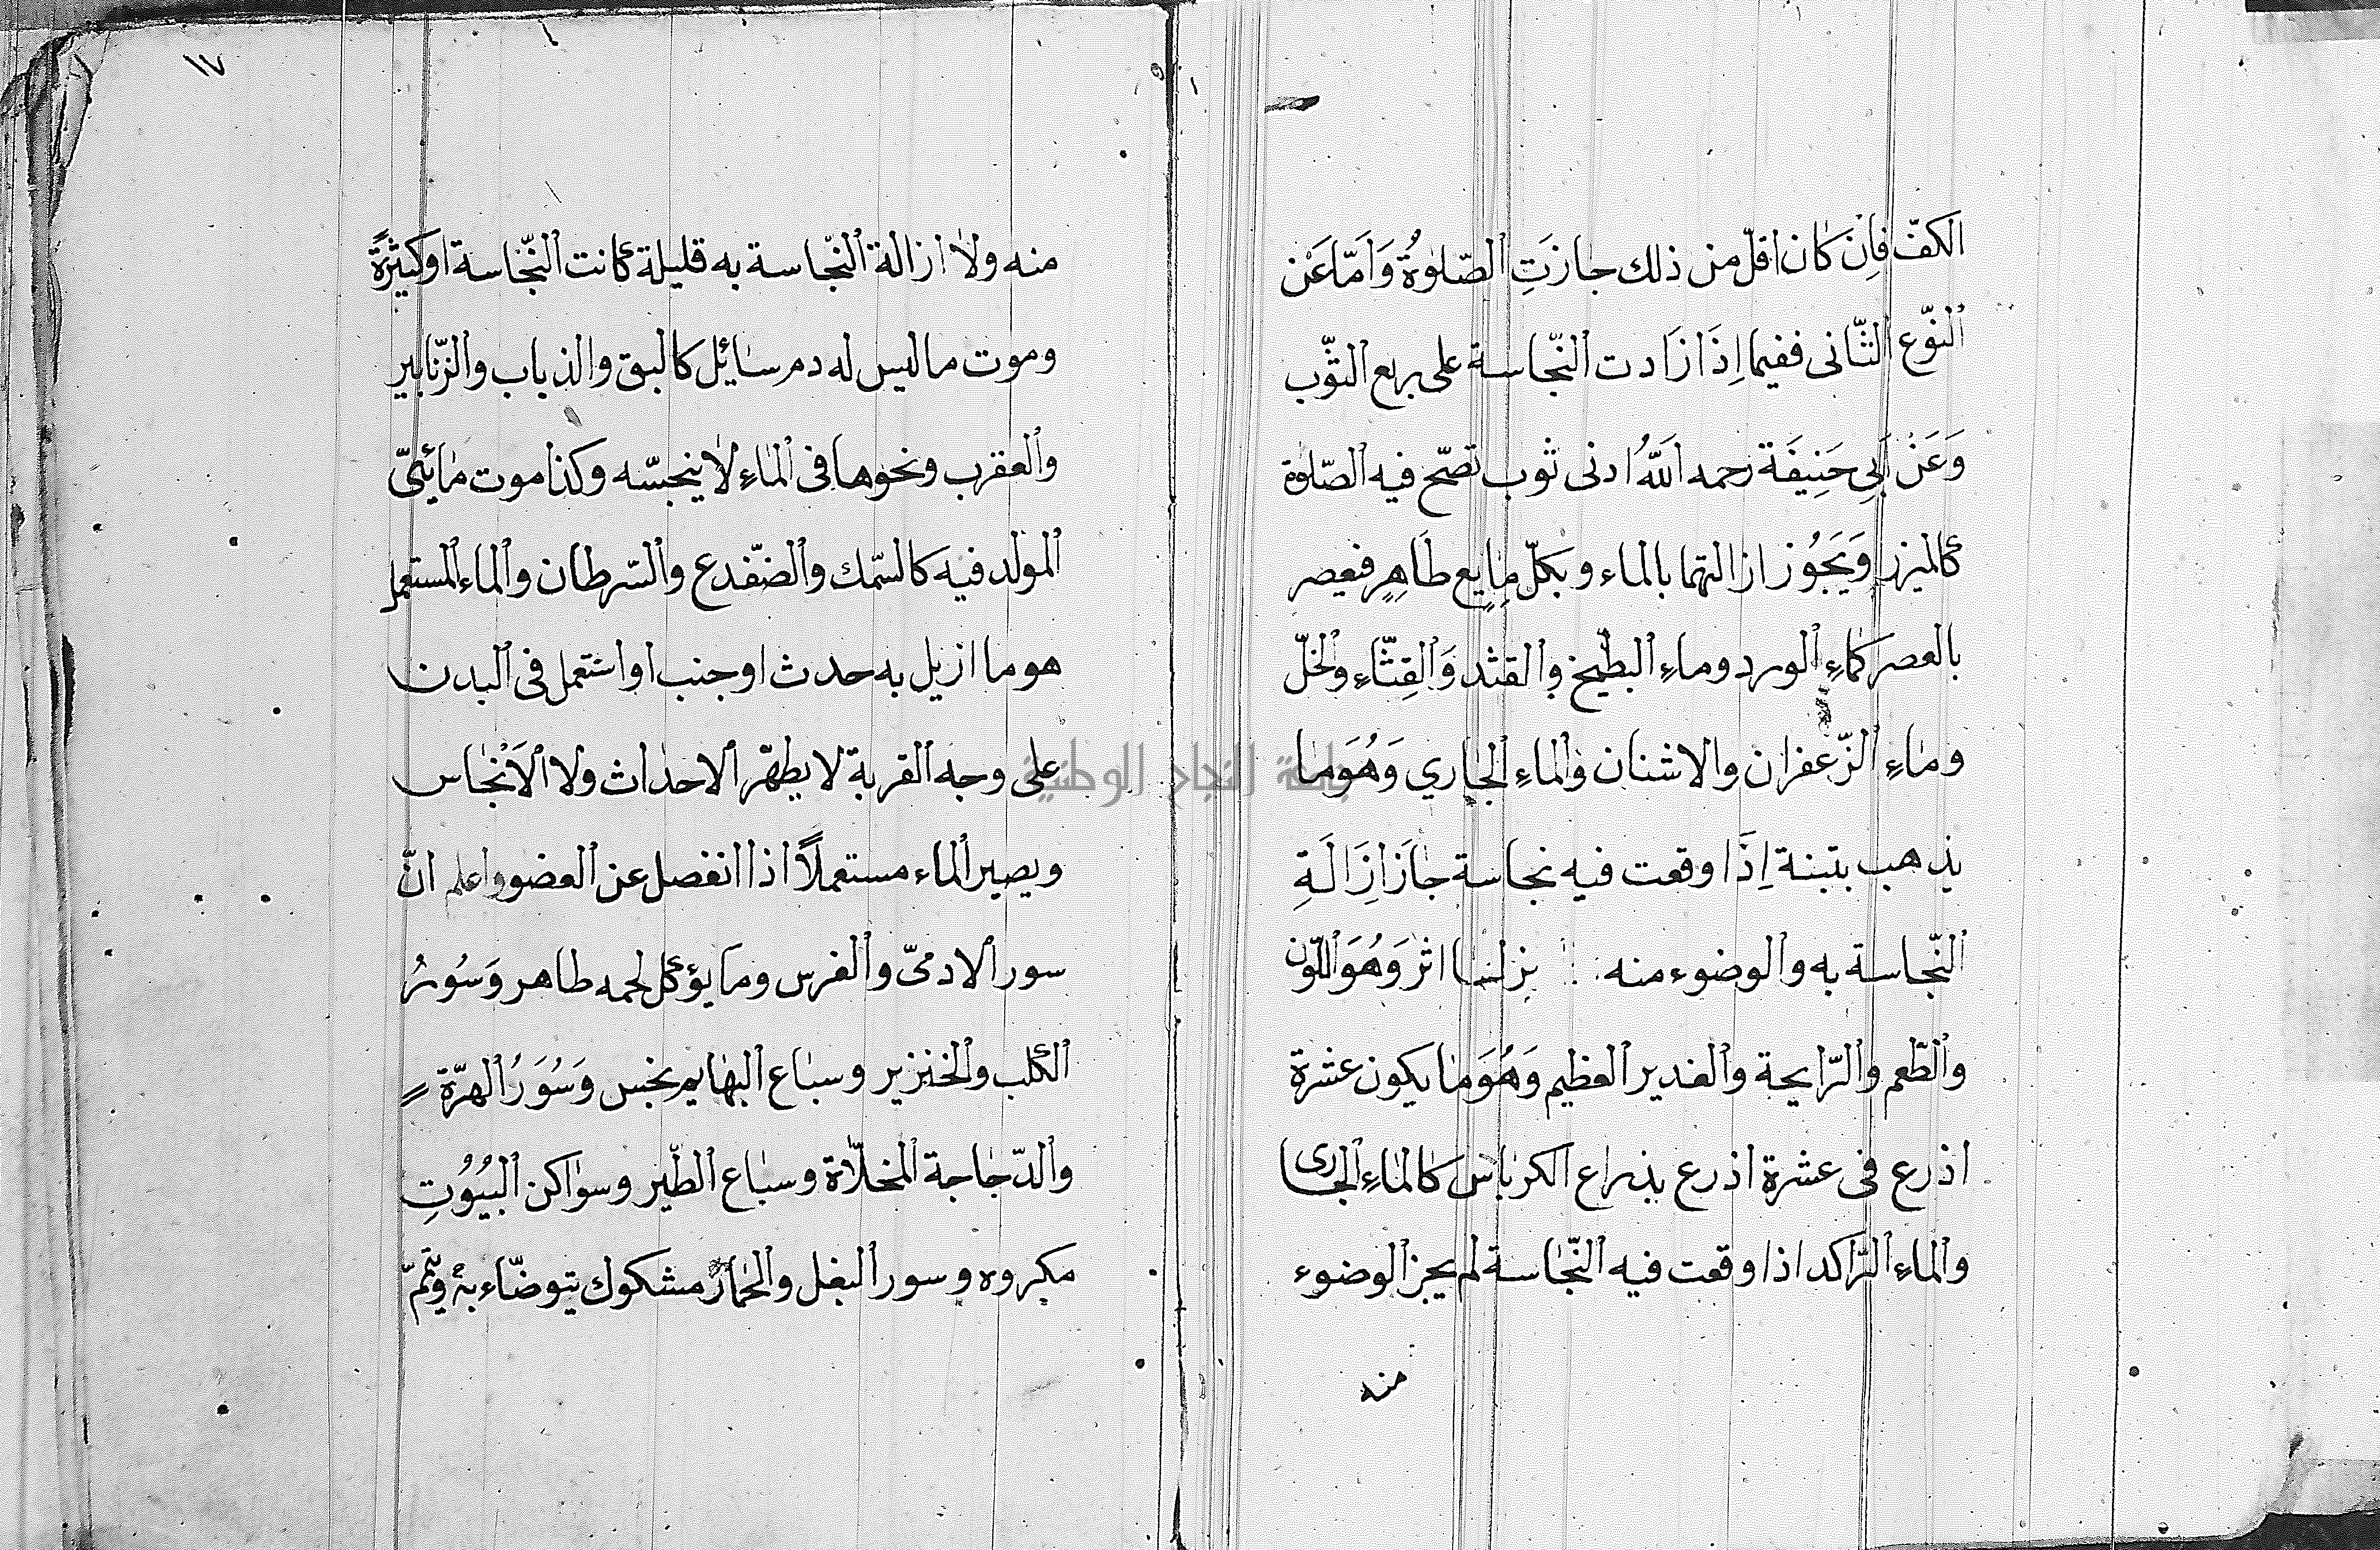 الكفّ فاِنْ كان اقلّ من ذلك جازَتِ الصّلوٰةُ وَاَمّا عَن
النّوع الثّانى ففيما اِذَا زَادت النّجاسة على ربع الثّوب
وَعَنْ اَبِى حَنِيفَة رحمه اللّهُ ادنى ثوب تصحّ فيه الصّلوٰة
كالميزر وَيَجُوز ازالتها بالماء وبكلّ مايع طَاهِرٍ فيعصر
بالعصر كماءِ الورد وماءِ البطّيخ والقثد وَالقِثّاءِ والخلّ
وماءِ الزّعفران والاشنان والماءِ الجاري وَهُوَ ما
يذهب بتبنة اِذَا وقعت فيه نجاسة جَازَ اِزَالَةِ
النّجاسة به والوضوء منه اثر وَهُوَ اللّون
والطّعم والرّايحة والغدير العظيم وَهُوَ ما يكون عشرة
اذرع فى عشرة اذرع بذراع الكرباس كالماءِ الجارى
والماءِ الرّاكد اذا وقعت فيه النّجاسة لم يجز الوضوء
منه
١٧
منه ولا ازالة النّجاسة به قليلة كانت النّجاسة او كثيرةً
وموت ما ليس له دم سائل كالبق والذباب والزّنابير
والعقرب ونحوها فى الماءِ لا ينجّسه وكذا موت مائىّ
المولد فيه كالسّمك والضّفدع والسّرطان والماء المستعمل
هو ما ازيل به حدث او جنب او استعمل فى البدن
على وجه القربة لا يطهّر الاحداث ولا الاَنْجاس
ويصير الماء مستعملاً اذا انفصل عن العضو واعلم انّ
سور الادمىّ والفرس وما يؤكل لحمه طاهر وَسُورُ
الكلب والخنزير وسباع البهايم نجس وَسُوَرُ الهرّة
والدّجاجة المخلّاة وسباع الطّير وسواكن البُيُوُتِ
مكروه وسور البغل والحمار مشكوك يتوضّاء به ويتيمّ
جامعة النجاح الوطنية